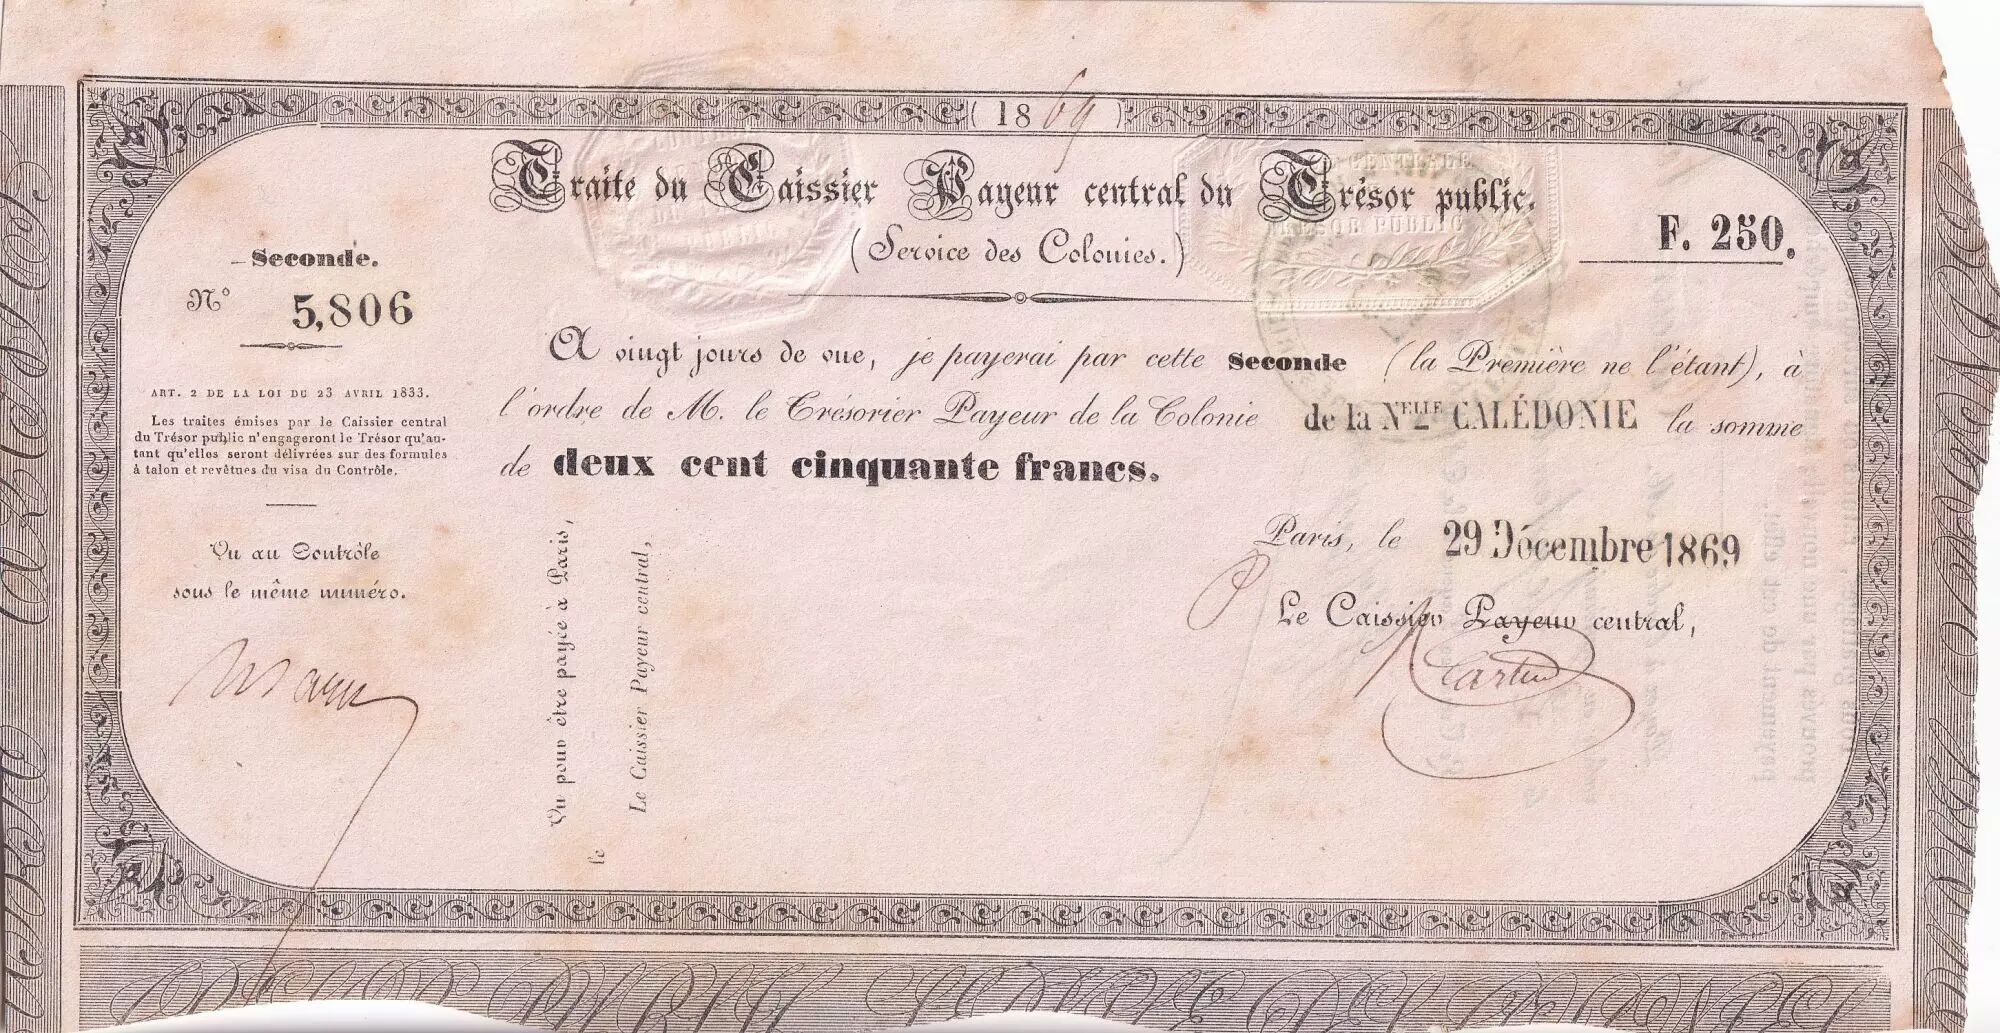 ( 1869 )
Traite du Caissier Payeur central du Trésor public.
(Service des Colonies.)
F. 250.
Seconde.
N° 5,806
ART. 2 DE LA LOI DU 23 AVRIL 1833.
Les traites émises par le Caissier central
du Trésor public n'engageront le Trésor qu'au-
tant qu'elles seront délivrées sur des formules
à talon et revêtues du visa du Contrôle.
Vu au Contrôle
sous le même numéro.
A vingt jours de vue, je payerai par cette Seconde (la Première ne l'étant), à
l'ordre de M. le Trésorier Payeur de la Colonie de la Nelle CALÉDONIE la somme
de deux cent cinquante francs.
Vu pour être payée à Paris,
le
Le Caissier Payeur central,
Paris, le 29 Décembre 1869
Le Caissier Payeur central,
TRESOR PUBLIC